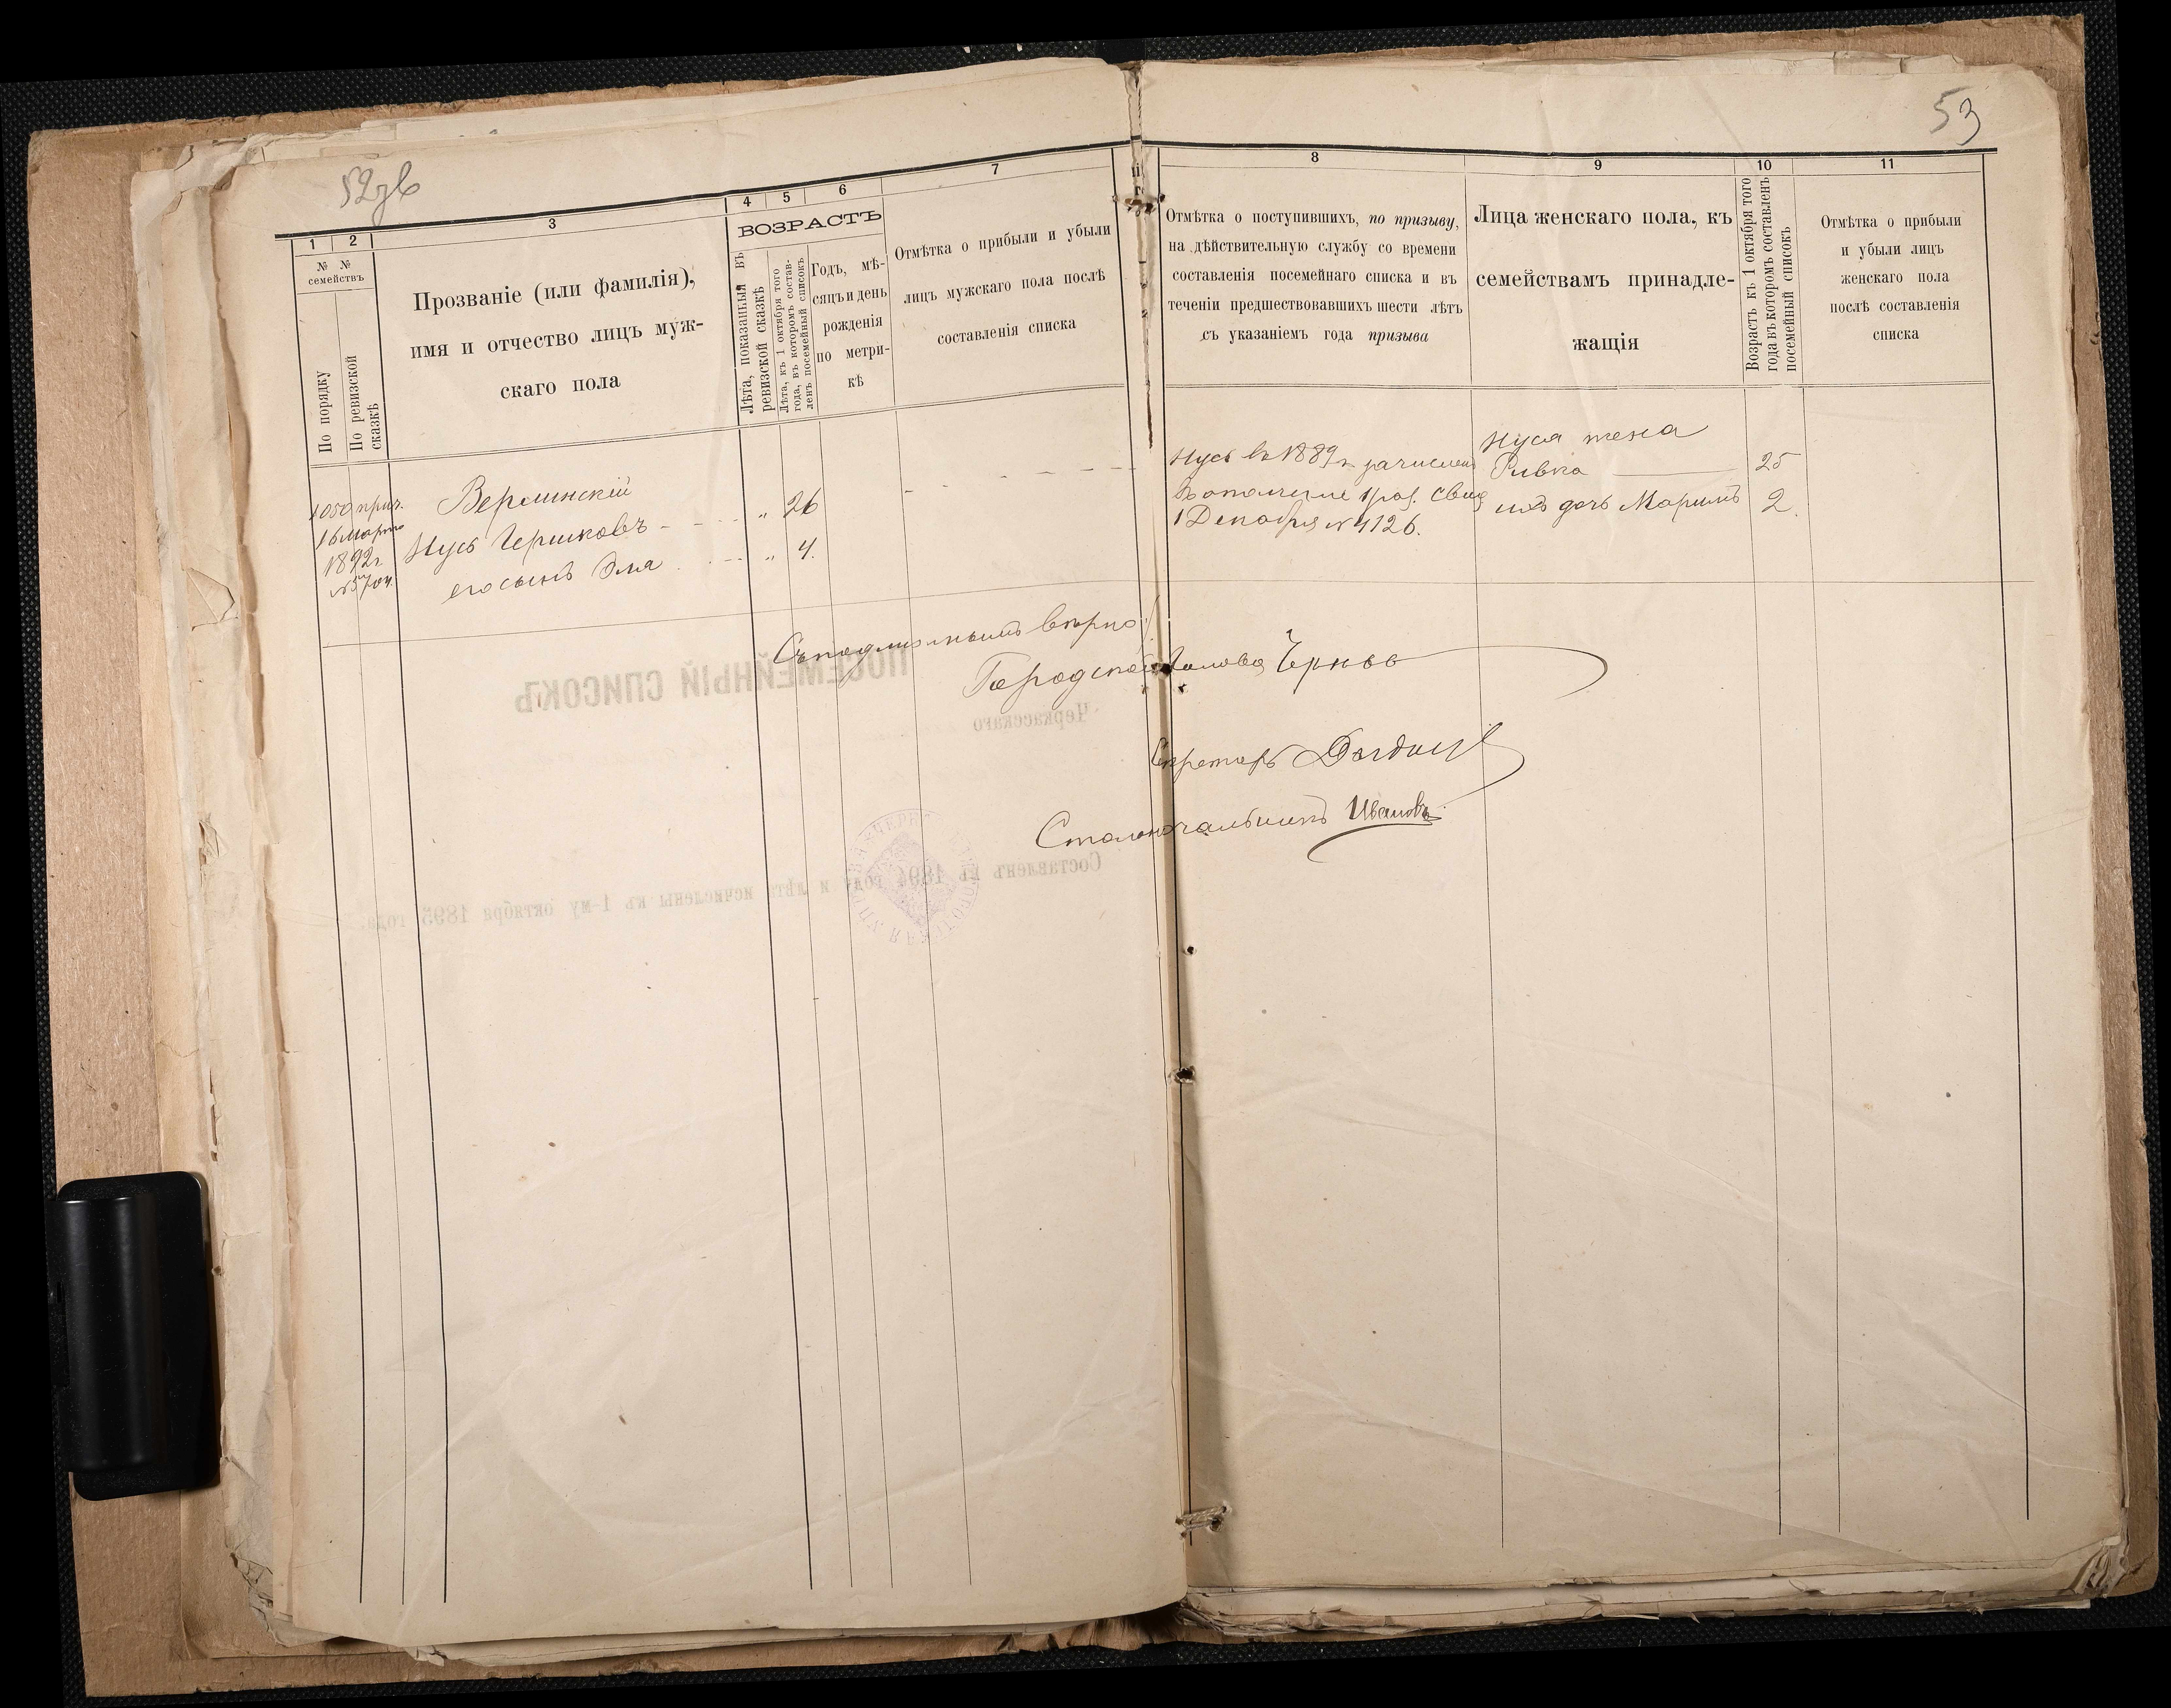 52зв
53
1
2
3
4
5
6
7
№ №
семействъ
По порядку
По ревизской
сказкѣ
Прозваніе (или фамилія),
имя и отчество лицъ муж-
скаго пола
ВОЗРАСТЪ
Лѣта, показанныя въ
ревизской сказкѣ
Лѣта, къ 1 октября того
года, въ которомъ состав-
ленъ посемейный списокъ
Годъ, мѣ-
сяцъ и день
рожденія
по метри-
кѣ
Отмѣтка о прибыли и убыли
лицъ мужскаго пола послѣ
составленія списка
8
9
10
11
Отмѣтка о поступившихъ, по призыву,
на дѣйствительную службу со времени
составленія посемейнаго списка и въ
теченіи предшествовавшихъ шести лѣтъ
съ указаніемъ года призыва
Лица женскаго пола, къ
семействамъ принадле-
жащія
Возрастъ къ 1 октября того
года въ которомъ составленъ
посемейный списокъ
Отмѣтка о прибыли
и убыли лицъ
женскаго пола
послѣ составленія
списка
1050 прич.
16 марта
1892 г
Верлинскій
Нусь Гершковъ - 26
его сынъ Эля 4.
Нусь въ 1889 г зачисленъ
въ ополченіе 1 раз. свид
1 Декабря № 4126.
Нуся жена
Ривка 25
ихъ дочь Маримъ 2.
Съ подлиннымъ вѣрно:
Городской Голова
Секретарь
Столоначальникъ Ивановъ
ПОСЕМЕЙНЫЙ СПИСОКЪ
Черкасскаго
Составленъ въ 1894 году и лѣта исчислены къ 1-му октября 1895 года.